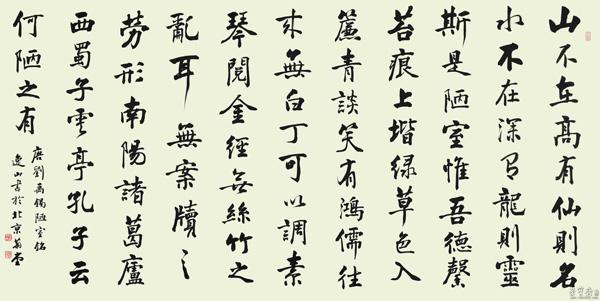 山不在高有仙則名
水不在深有龍則靈
斯是陋室惟吾德馨
苔痕上堦緑草色入
簾青談笑有鴻儒往
来無白丁可以調素
琴閱金經無絲竹之
亂耳無案牘之
勞形南陽諸葛廬
西蜀子雲亭孔子云
何陋之有
唐劉禹錫陋室銘
逸山書於北京堂